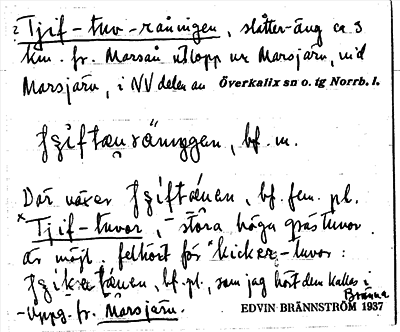 Tjif-tuv-råningen, slåtter-äng ca 3
km. fr. Marsån utlopp ur Marsjärv, vid
Marsjärv, i NV delen av Överkalix sn o. tg Norrb. l.
bf. m.
Där växer bf. fem. pl.
Tjif-tuvor, - stora höga grästuvor
är möjl. felhört för "kicker-tuvor:
bf. pl., som jag hört dem kallas i
Bränna
-Uppg. fr. Marsjärv. EDVIN BRÄNNSTRÖM 1937